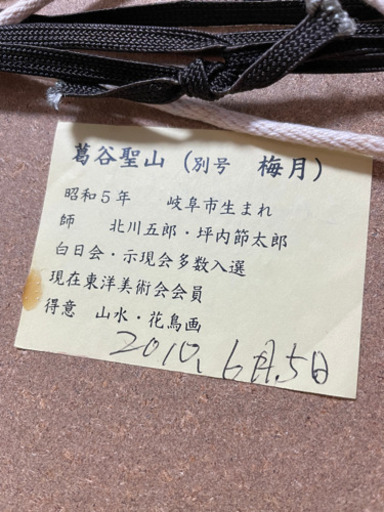 葛谷聖山（別号　梅月）
昭和５年　　岐阜市生まれ
師　　北川五郎・坪内節太郎
白日会・示現会多数入選
現在東洋美術會会員
得意　山水・花鳥画
2010, 6月.5日